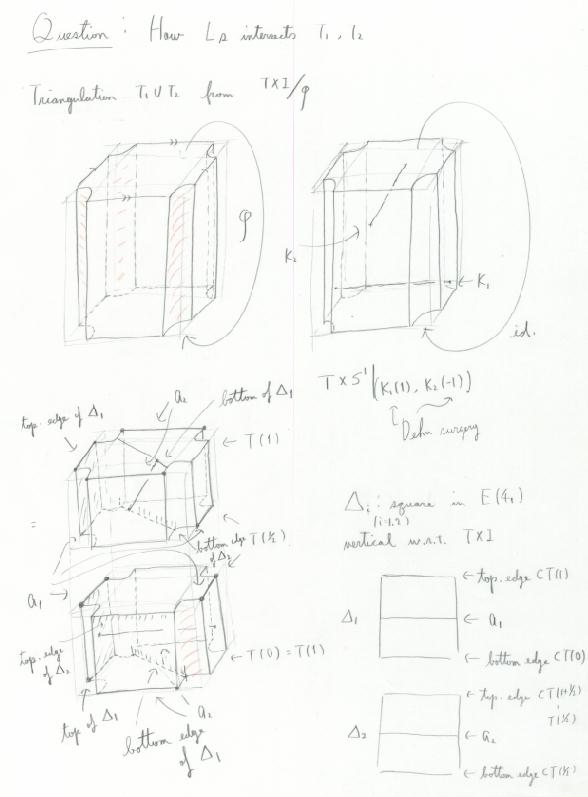 Question : How Ls intersects T₁, T₂
Triangulation T₁ ∪ T₂ from T×I/φ
φ
K₂
K₁
id.
T × S¹ | (K₁(1), K₂(-1))
Dehn surgery
top. edge of Δ₁
a₂
bottom of Δ₁
T(1)
=
bottom edge of Δ₂
T(½)
a₁
top. edge of Δ₂
T(0) = T(1)
top of Δ₁
a₂
bottom edge of Δ₁
Δᵢ : square in E(4₁)
(i=1,2)
vertical w.r.t. T×I
Δ₁
top. edge ⊂ T(1)
a₁
bottom edge ⊂ T(0)
Δ₂
top. edge ⊂ T(1+½)
T(½)
a₂
bottom edge ⊂ T(½)